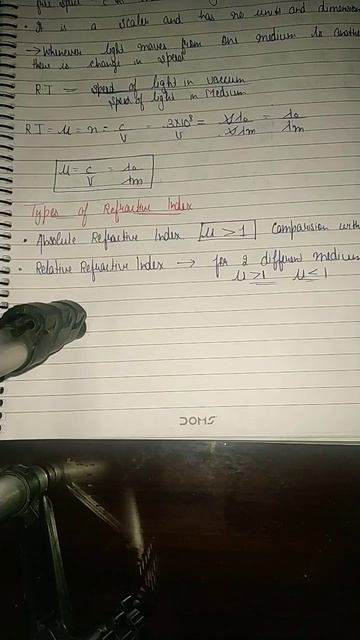 free space
• It is a scaler and has no units and dimension
→ Whenever light moves from one medium to another
there is change in speed
R.I = speed of light in vaccum
speed of light in Medium
R.I = μ = n = c/v = 3×10⁸/v = νλo/νλm = λo/λm
μ = c/v = λo/λm
Types of Refractive Index
• Absolute Refractive Index μ > 1 Comparision with
• Relative Refractive Index → for 2 different medium
μ > 1 μ < 1
DOMS